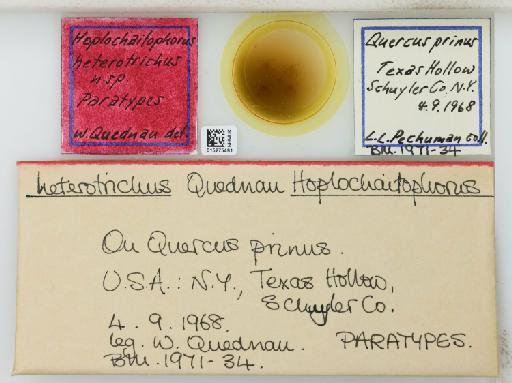 Hoplochaitophorus
heterotrichus
n.sp.
Paratypes
W. Quednau det.
Quercus prinus
Texas Hollow
Schuyler Co. N.Y.
4.9.1968
L.L. Pechuman coll.
BM. 1971-34
heterotrichus Quednau Hoplochaitophorus
On Quercus prinus.
U.S.A.: N.Y., Texas Hollow,
Schuyler Co.
4. 9. 1968.
leg. W. Quednau. PARATYPES.
BM. 1971-34.